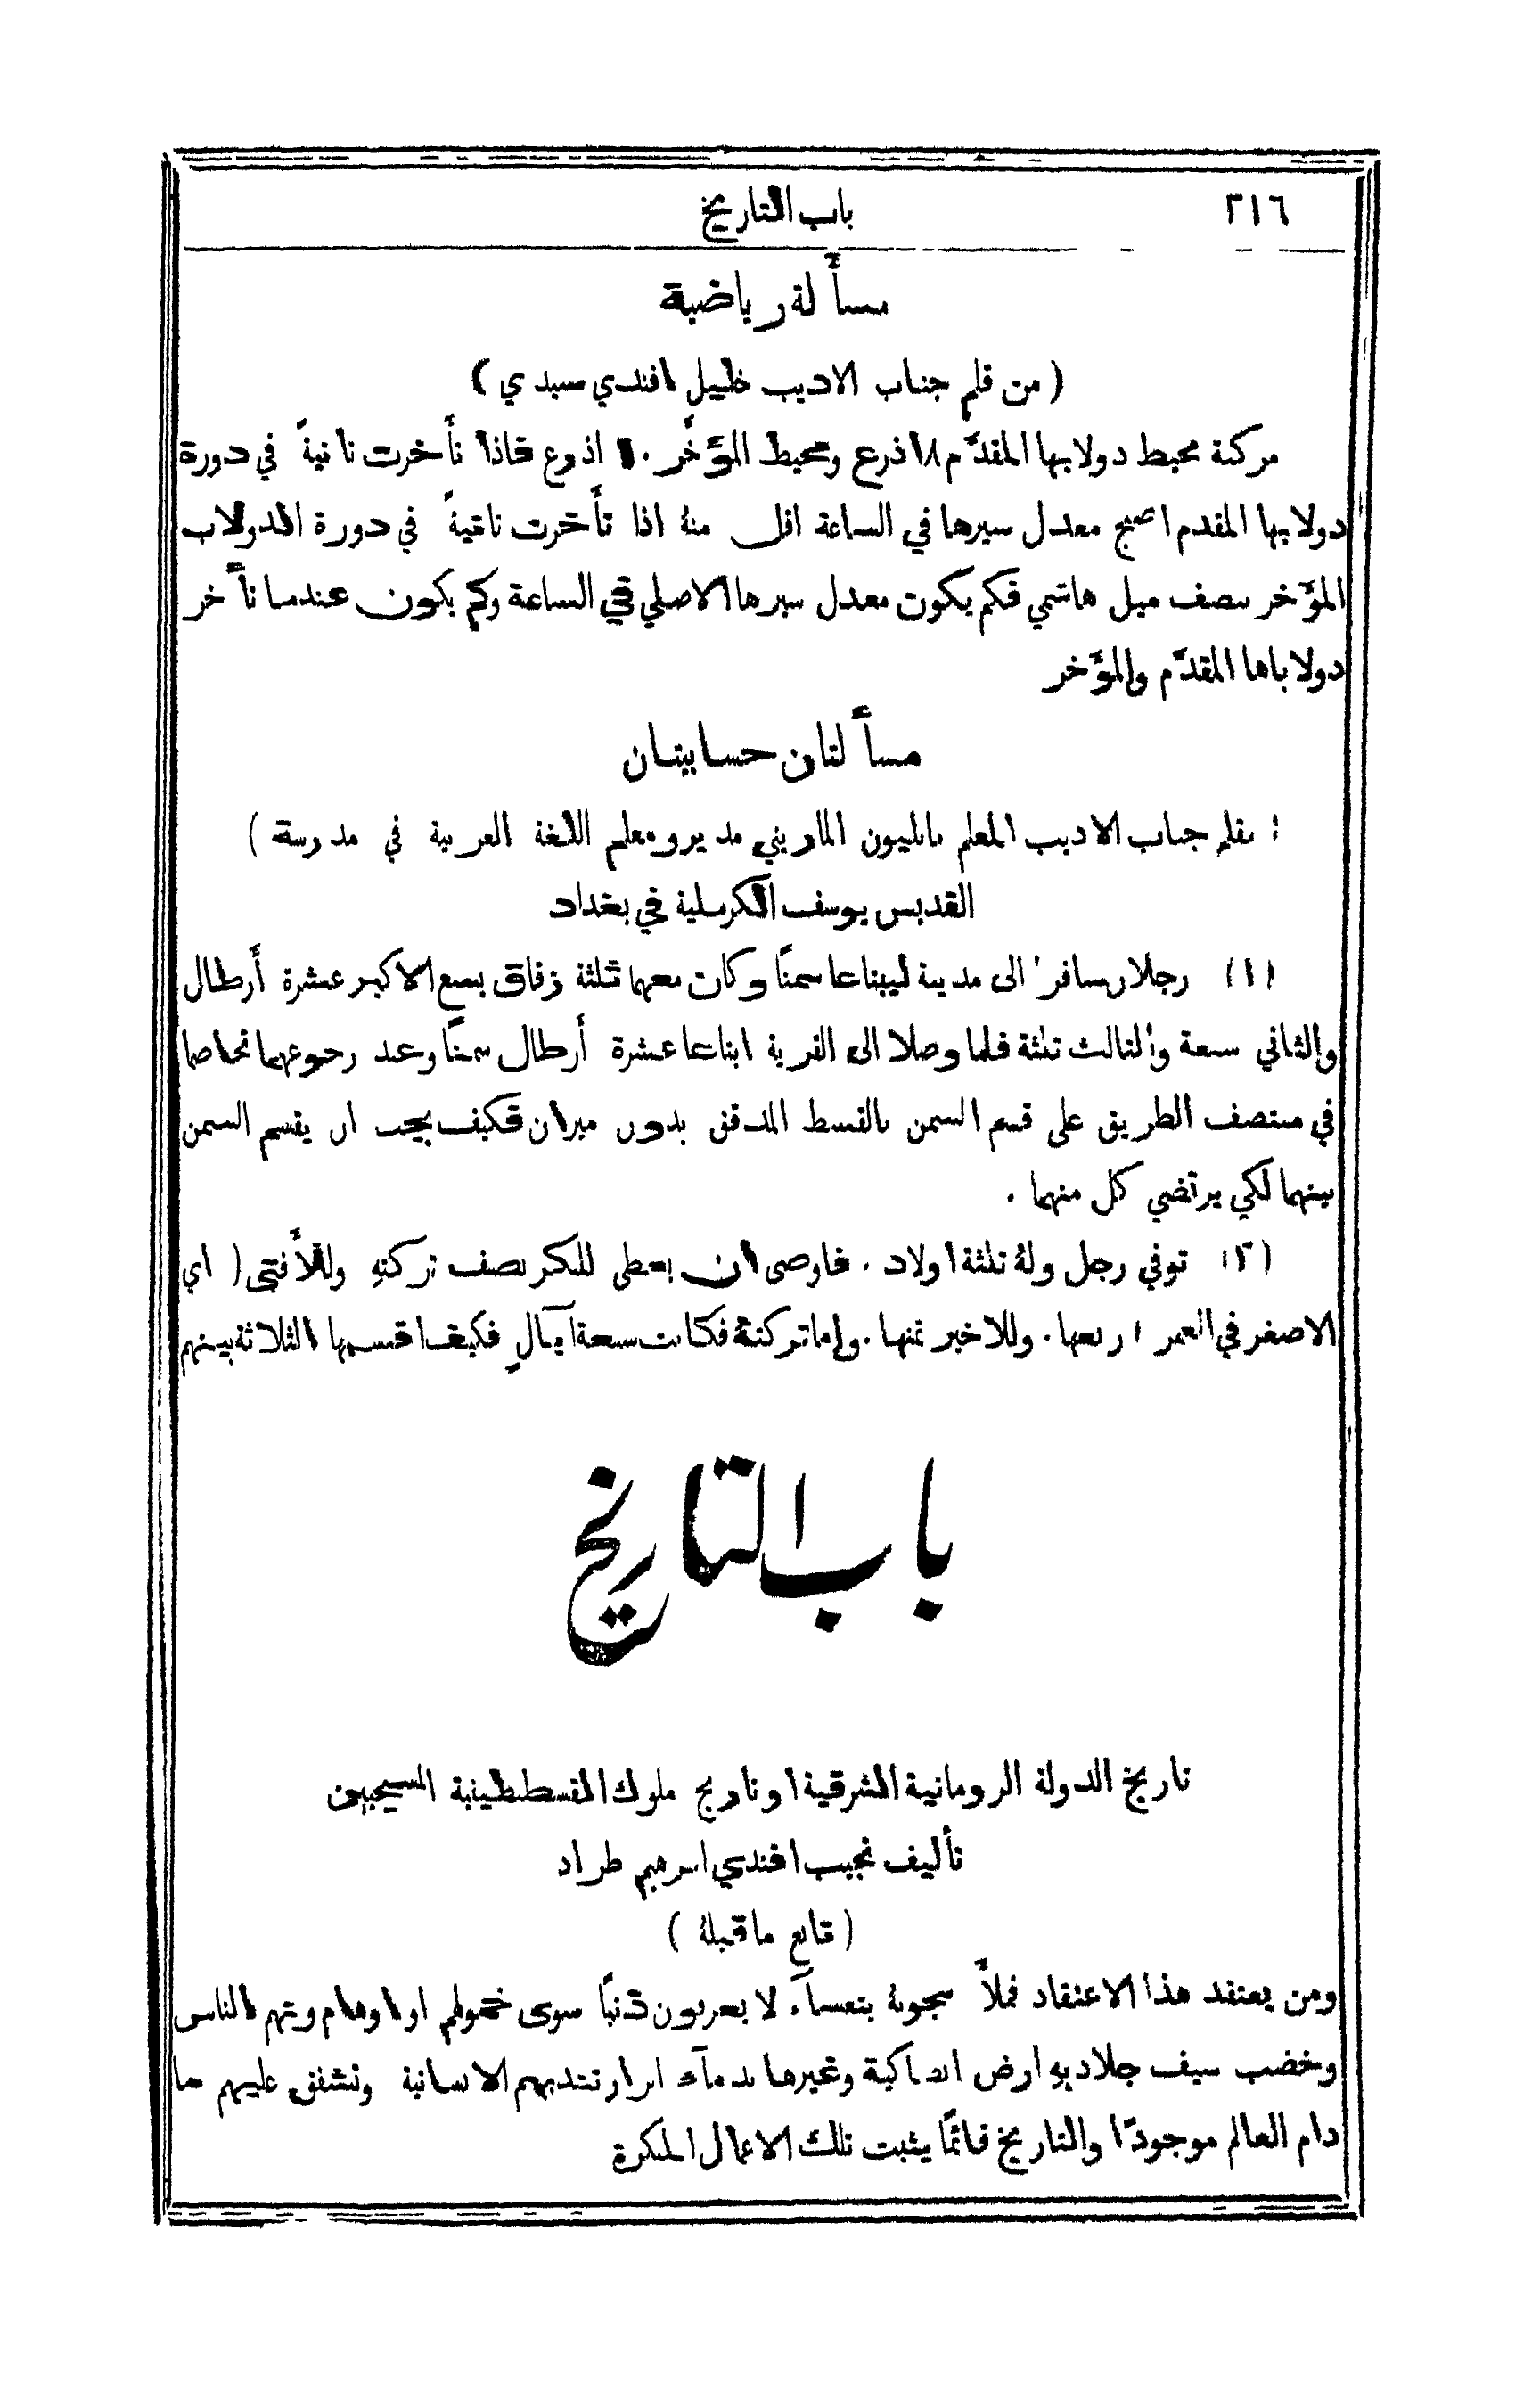 ٢١٦ باب التاريخ
مسأَلة رياضية
( من قلم جناب الاديب خليل افندي سيدي )
مركبة محيط دولابها المقدَّم ١٨ اذرع ومحيط المؤَخَّر ١٠ اذرع فاذا تأَخرت ثانيةً في دورة
دولابها المقدم اصبح معدل سيرها في الساعة اقل منهُ اذا تأَخرت ثانيةً في دورة الدولاب
المؤَخر بنصف ميل هاشمي فكم يكون معدل سيرها الاصلي في الساعة وكم يكون عندما تأَخر
دولاباها المقدَّم والمؤَخر
مسأَلتان حسابيتان
( بقلم جناب الاديب المعلم نابليون الماريني مدير ومعلم اللغة العربية في مدرسة )
القديس يوسف الكرملية في بغداد
(١) رجلان سافرا الى مدينة ليبتاعا سمنًا وكان معهما ثلثة زقاق يسع الاكبر عشرة أَرطال
والثاني سبعة والثالث ثلثة فلما وصلا الى القرية ابتاعا عشرة أَرطال سمنًا وعند رجوعهما تخاصما
في منتصف الطريق على قسم السمن بالقسط المدقق بدون ميزان فكيف يجب ان يقسم السمن
بينهما لكي يرتضي كل منهما .
(٢) توفي رجل ولهُ ثلثة اولاد . فاوصى ان يعطى للبكر نصف تركتهِ وللأَفتى ( اي
الاصغر في العمر ) ربعها . وللاخير ثمنها . واما تركتهُ فكانت سبعة آبالٍ فكيف اقسمها الثلاثة بينهم
باب التاريخ
تاريخ الدولة الرومانية الشرقية او تاريخ ملوك القسطنطينية المسيحيين
تأَليف نجيب افندي ابرهيم طراد
( تابع ما قبلهُ )
ومن يعتقد هذا الاعتقاد فملأَ سجونهُ بتعساء لا يعرفون ذنبًا سوى خمولهم او اوهام وتهم الناس
وخضب سيف جلاديهِ ارض انطاكية وغيرها بدمآء ابرار تندبهم الانسانية وتشفق عليهم ما
دام العالم موجودًا والتاريخ قائمًا يثبت تلك الاعمال المنكرة